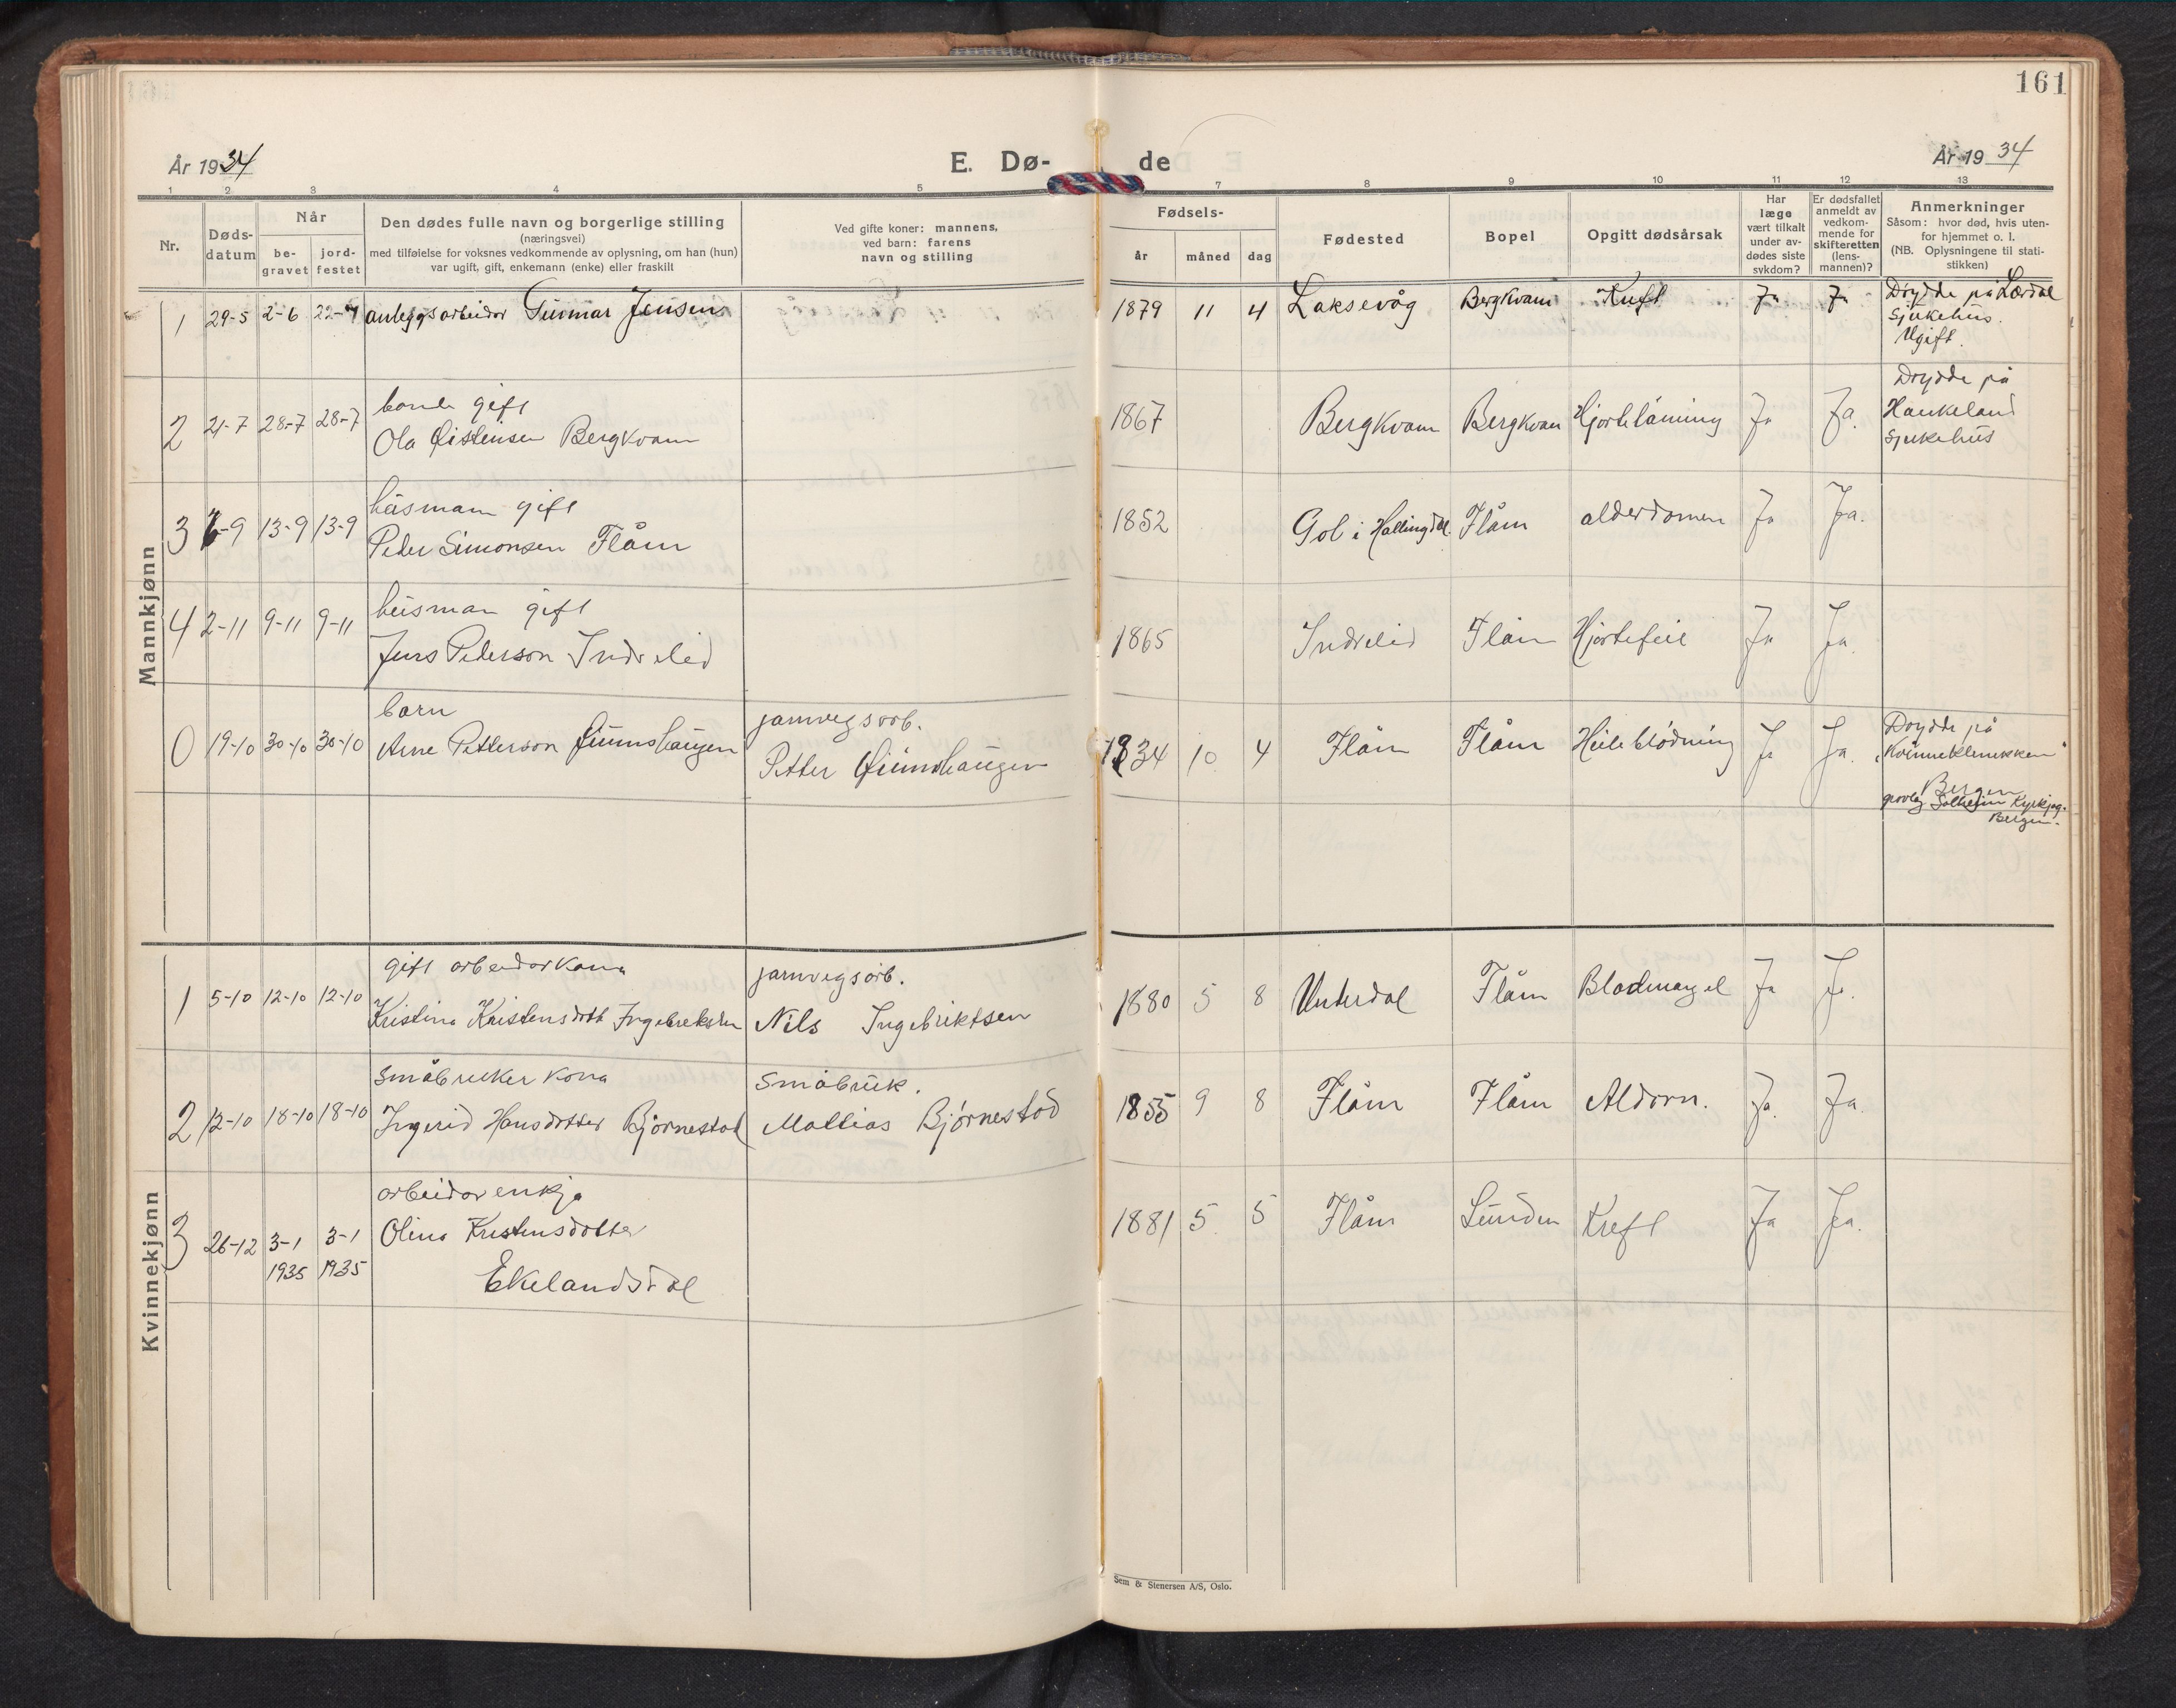 161
År 1934
E. Dø-
de
År 1934
1 2 3 4 5 7 8 9 10 11 12 13
Nr.
Døds-
datum
Når
be-
gravet
jord-
festet
Den dødes fulle navn og borgerlige stilling
(næringsvei)
med tilføielse for voksnes vedkommende av oplysning, om han (hun)
var ugift, gift, enkemann (enke) eller fraskilt
Ved gifte koner: mannens,
ved barn: farens
navn og stilling
Fødsels-
år måned dag
Fødested
Bopel
Opgitt dødsårsak
Har
læge
vært tilkalt
under av-
dødes siste
sykdom?
Er dødsfallet
anmeldt av
vedkom-
mende for
skifteretten
(lens-
mannen)?
Anmerkninger
Såsom: hvor død, hvis uten-
for hjemmet o. l.
(NB. Oplysningene til stati-
stikken)
Mannkjønn
1 29-5 2-6 22-7 anleggsarbeidar Gunnar Jensen 1879 11 4 Laksevåg Bergkvam Kreft Ja Ja Døydde på Lærdal
sjukehus.
Ugift.
bonde gift
2 21-7 28-7 28-7 Ola Øistensen Bergkvam 1867 Bergkvam Bergkvam Hjertelåming Ja Ja. Døydde på
Haukeland
sjukehus
husmann gift
3 6-9 13-9 13-9 Peder Simonsen Flåm 1852 Gol i Hallingdal Flåm alderdomen Ja Ja.
husman gift
4 2-11 9-11 9-11 Jens Pederson Indrelid 1865 Indrelid Flåm Hjertefeil Ja Ja.
barn jarnvegsarb.
0 19-10 30-10 30-10 Arne Petterson Grunnshaugen Petter Grunnshaugen 1934 10 4 Flåm Flåm Heileblødning Ja Ja. Døydde på
"Kvinneklinikken"
Bergen
gravlag Solheim Kyrkjeg.
Bergen.
Kvinnekjønn
gift arbeidarkona jarnvegsarb.
1 5-10 12-10 12-10 Kristina Kristensdott Ingebrektsen Nils Ingebriktsen 1880 5 8 Underdal Flåm Blodmangel Ja Ja.
småbrukerkona småbruk.
2 12-10 18-10 18-10 Ingerid Hansdotter Bjørnestad Mattias Bjørnestad 1855 9 8 Flåm Flåm Aldern. Ja. Ja.
arbeidarenkja
3 26-12 3-1 1935 3-1 1935 Olina Kristensdotter 1881 5 5 Flåm Lunden Kreft Ja Ja.
Ekelandsdal
Sem & Stenersen A/S, Oslo.